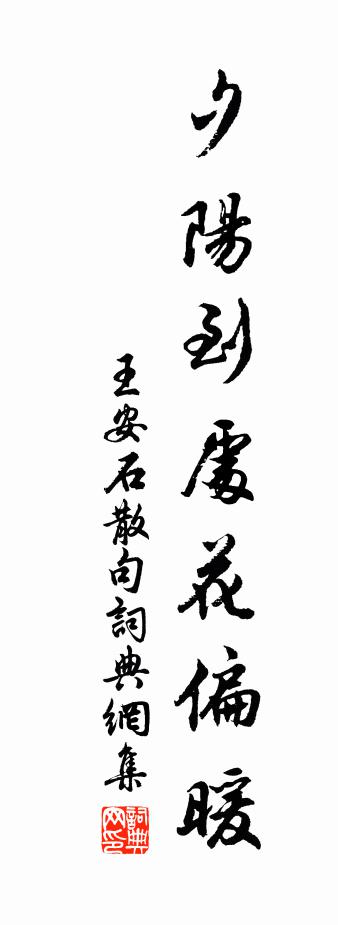 夕陽到處花偏暖
王安石散句詞典網集
詞典网印